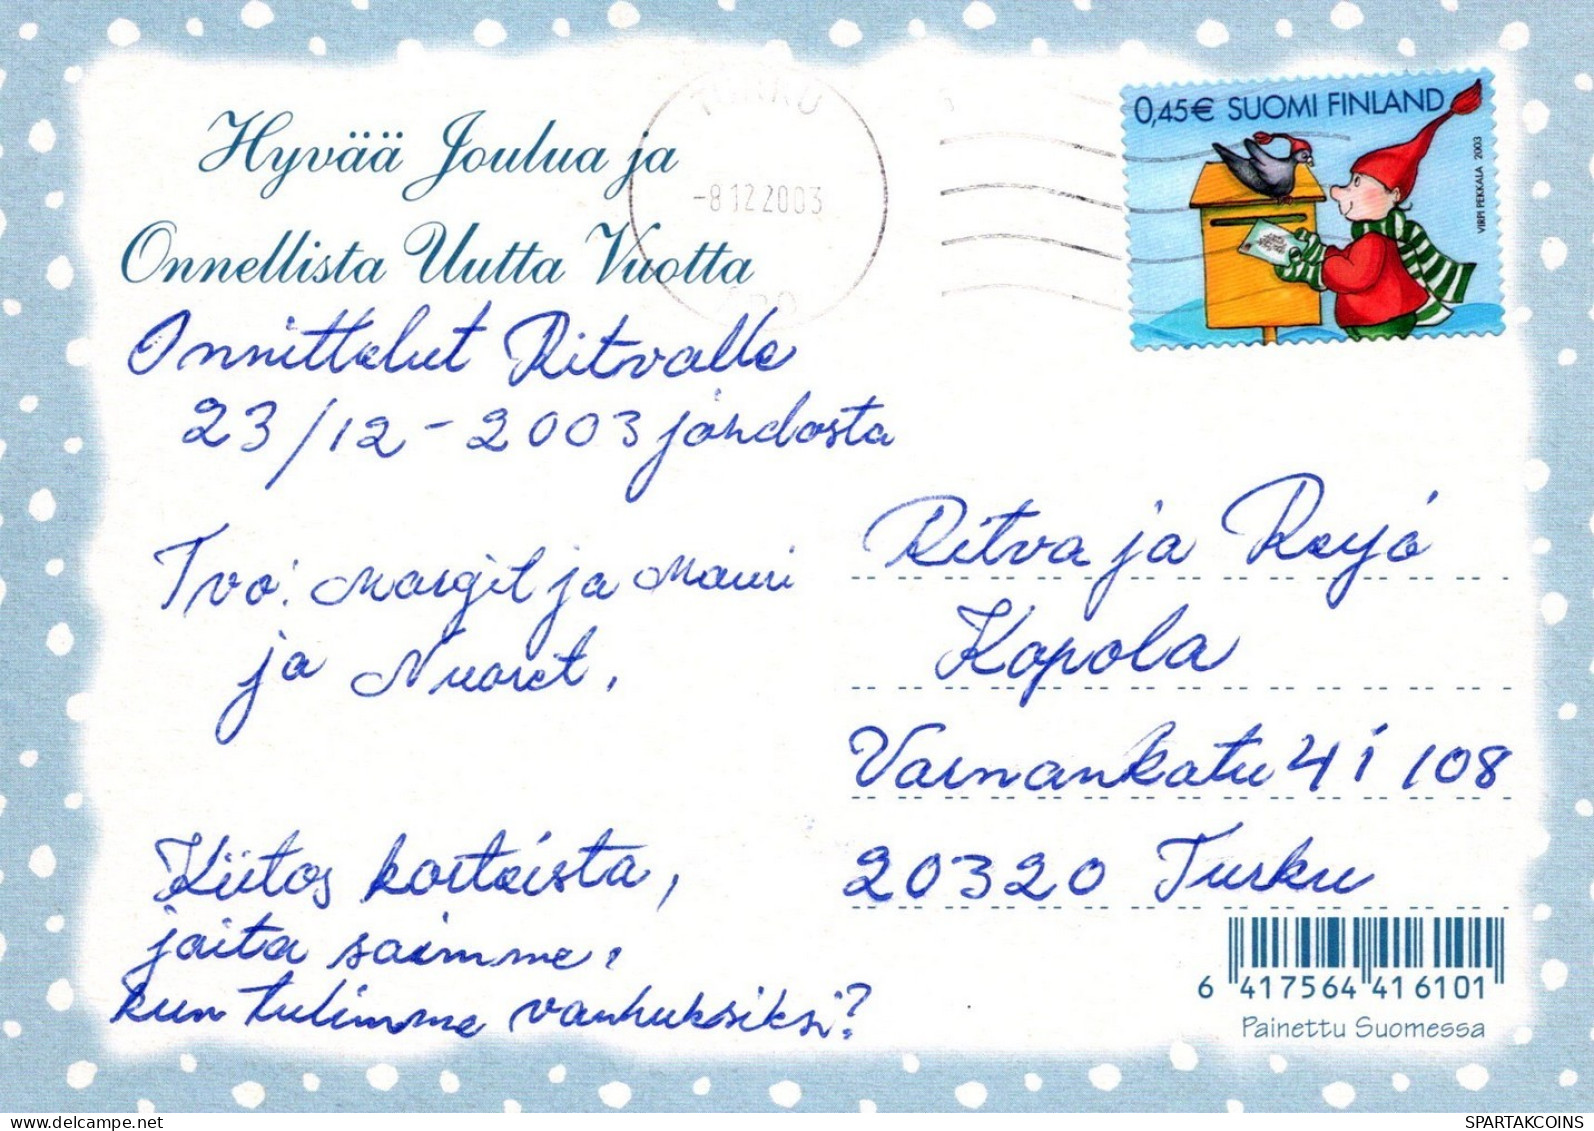 Hyvää Joulua ja
Onnellista Uutta Vuotta
TURKU
-8.12.2003
ÅBO
0,45€ SUOMI FINLAND
VIRPI PEKKALA 2003
Onnittelut Ritvalle
23/12-2003 johdosta
Tvo: Margit ja Mauri
ja Nuoret.
Ritva ja Reijo
Kopola
Varnankatu 4 i 108
20320 Turku
Kiitos korteista,
joita saimme,
kun tulimme vanhuksiksi?
6 417564 416101
Painettu Suomessa
SPARTAKCOINS